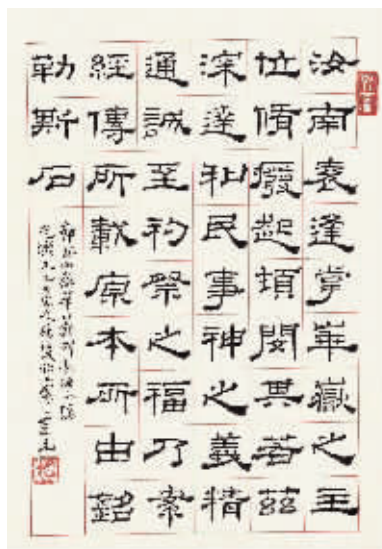 汝南袁逢掌華嶽之主
位脩廢起頓閔其若茲
深達和民事神之義精
通誠至礿祭之福乃案
經傳所載原本所由銘
勒斯石
節臨西嶽華山廟碑